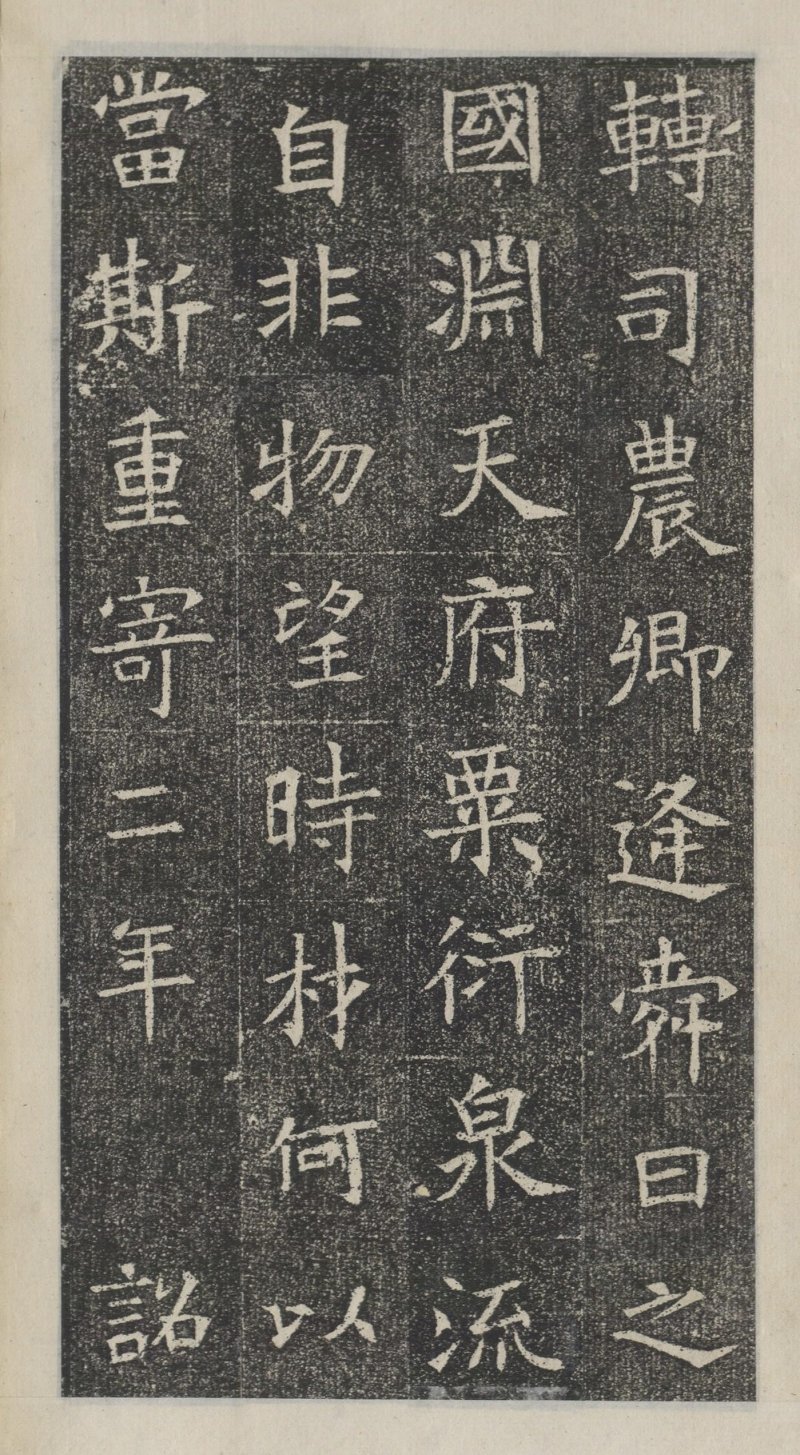 轉司農卿逢舜曰之
國淵天府粟衍泉流
自非物望時材何以
當斯重寄二年詔